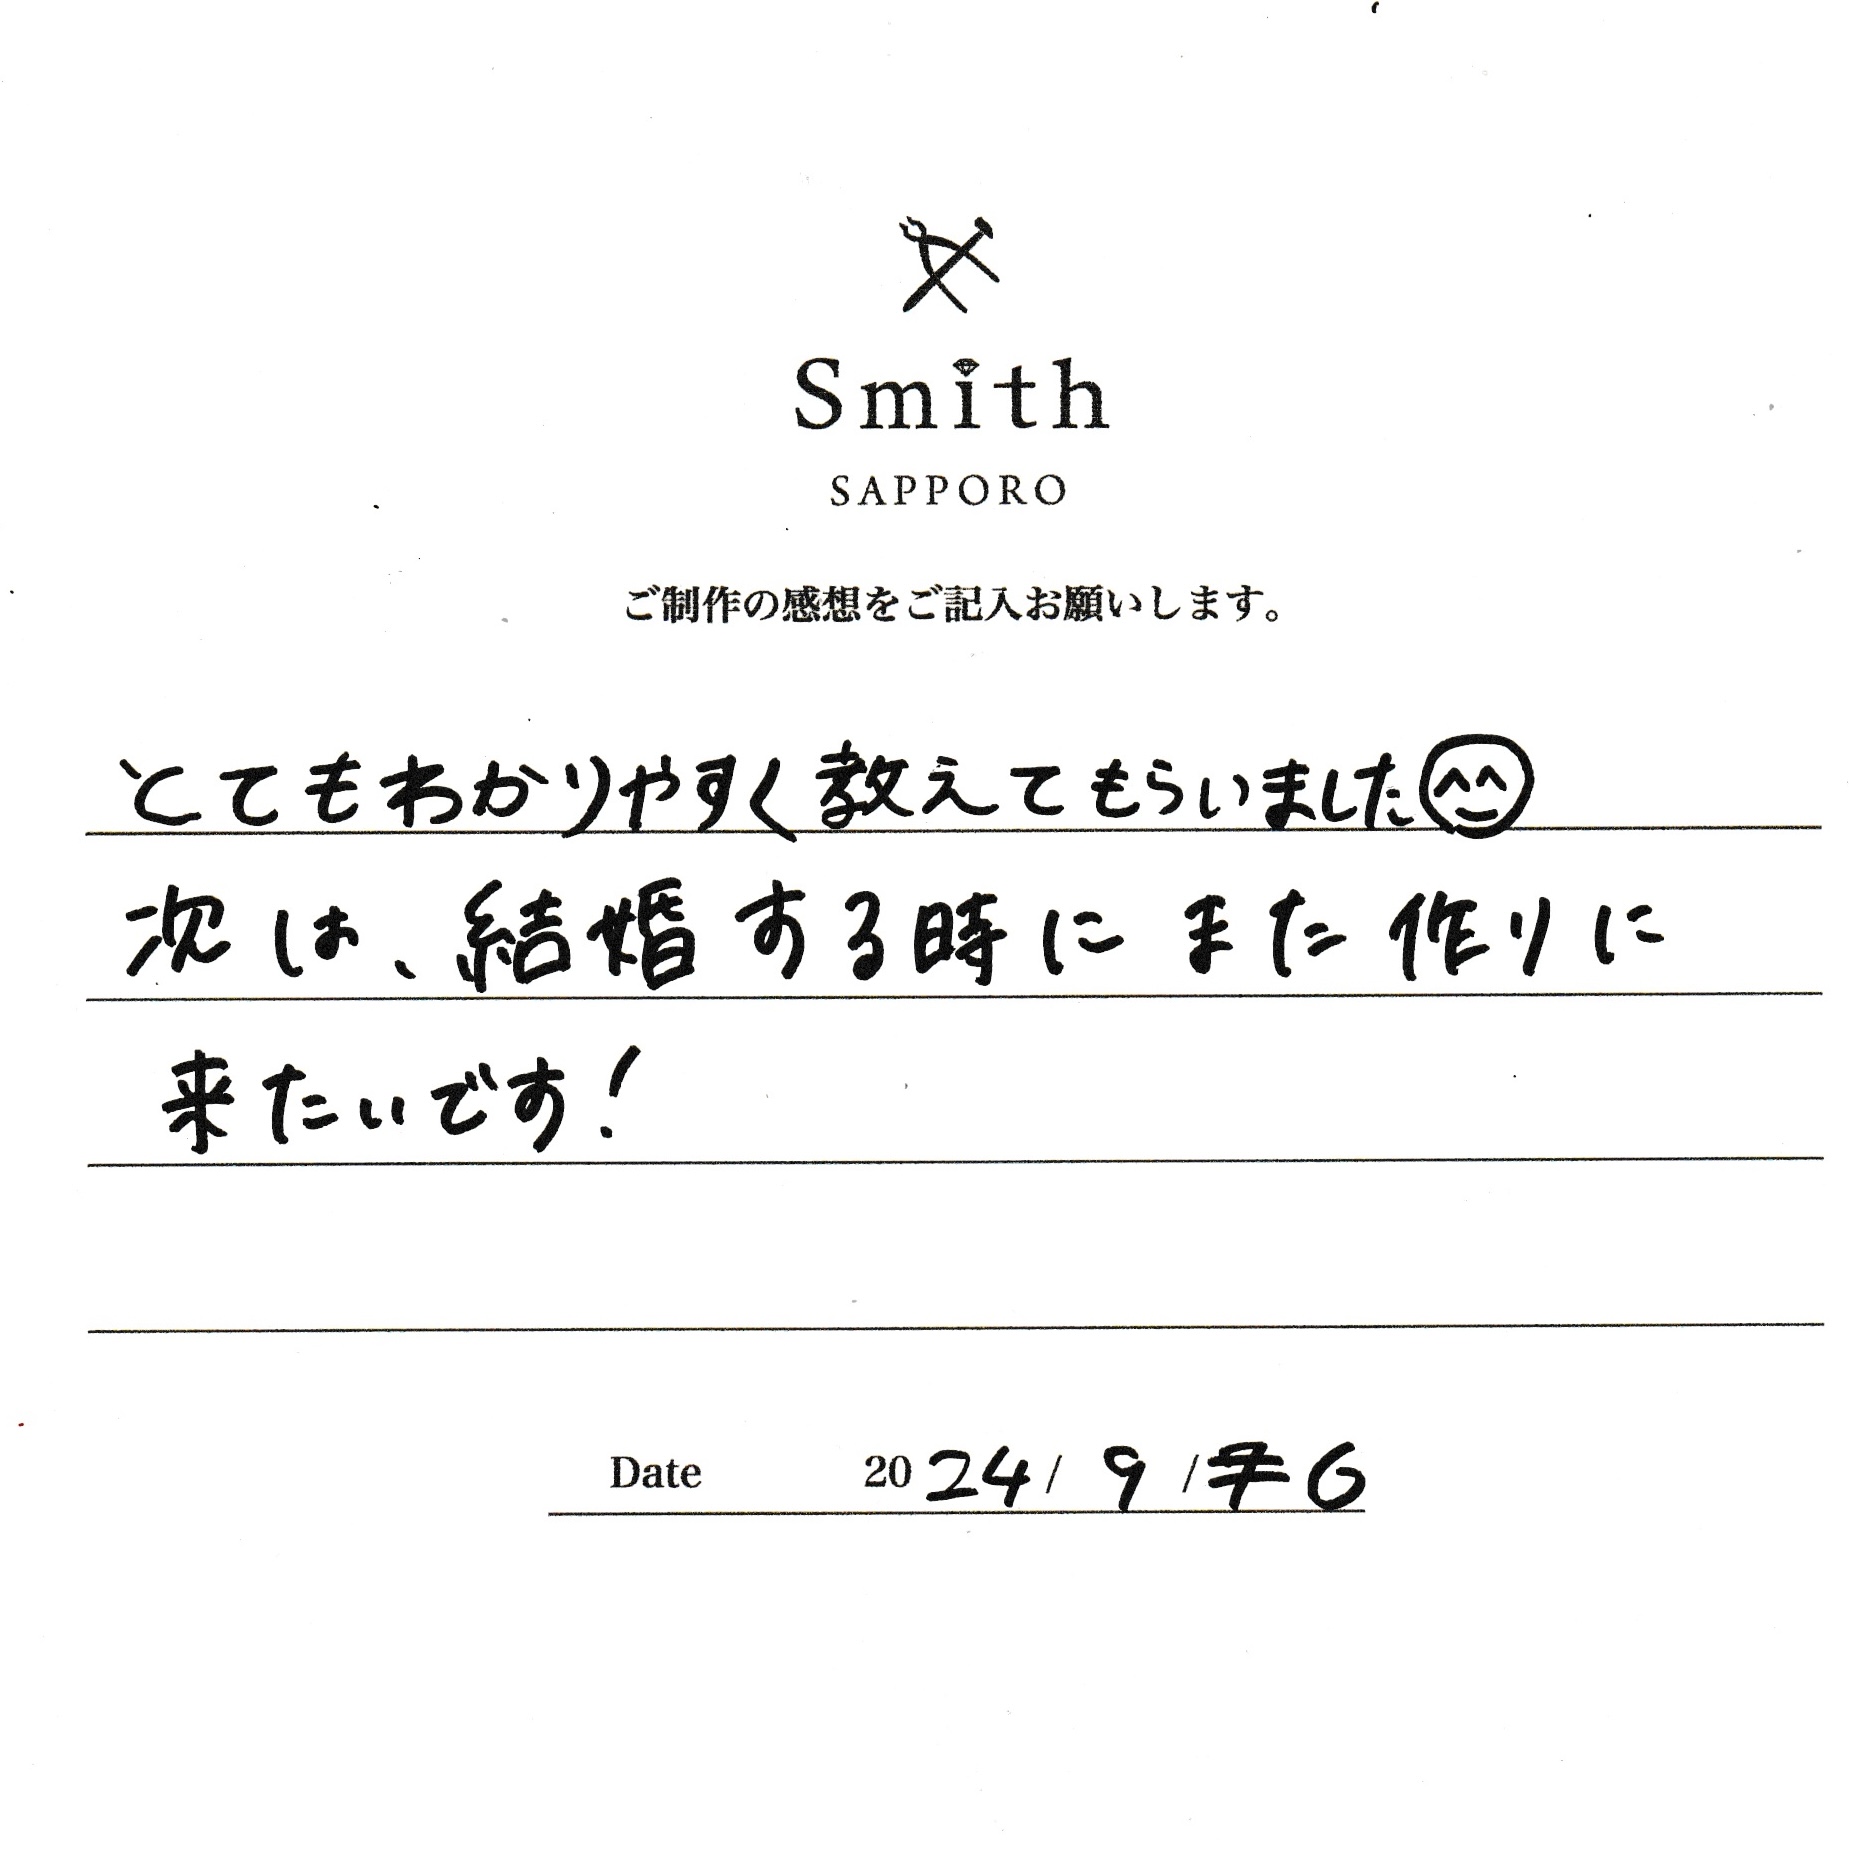 Smith
SAPPORO
ご制作の感想をご記入お願いします。
とてもわかりやすく教えてもらいました
次は、結婚する時にまた作りに
来たいです!
Date 2024/ 9 /7 6